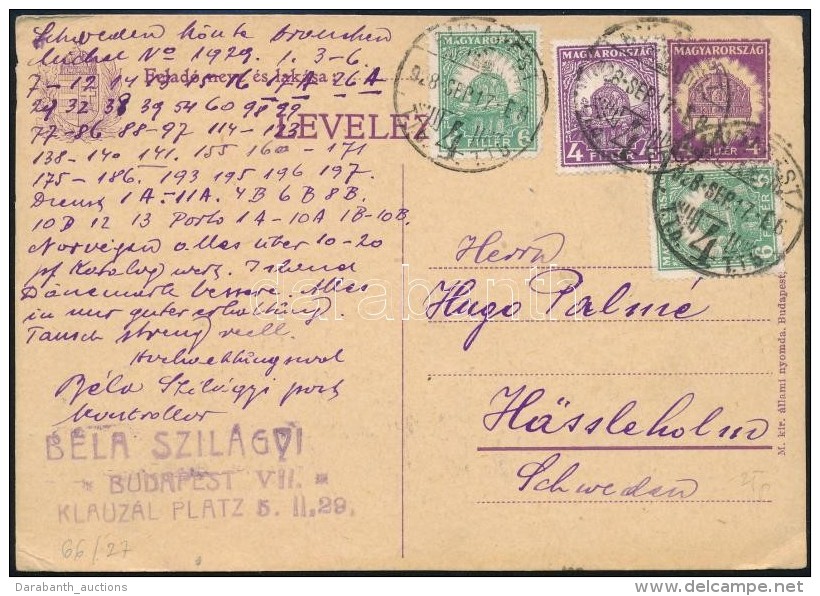 Schweden könte brauchen
Michel No 1929. 1. 3-6.
7-12 14 15 16 17A 26A
Feladó neve és lakása:
29 32 38 39 54 60 98 99
77-86 88-97 114-123
LEVELEZ
138-140 141. 155 160-171
175-186. 193 195 196 197.
Dienst 1A-11A. 4B 6B 8B.
10D 12 13 Porto 1A-10A 1B-10B.
Norvegen alles über 10-20
pf Katalog wert. Island
Dänemark bessere alles
in nur guter erhaltung.
Tausch streng reell.
Hochachtungsvol
Béla Szilágyi post
kontrollor
BÉLA SZILÁGYI
BUDAPEST VII.
KLAUZÁL PLATZ 5. II. 29.
66/27
MAGYARORSZÁG
6 FILLÉR 6
MAGYARORSZÁG
4 FILLÉR
MAGYARORSZÁG
928-SEP 17-E6
Herrn
Hugo Palmé
Hässleholm
Schweden
M. kir. állami nyomda, Budapest,
darabanth
Darabanth_auctions
delcampe.net